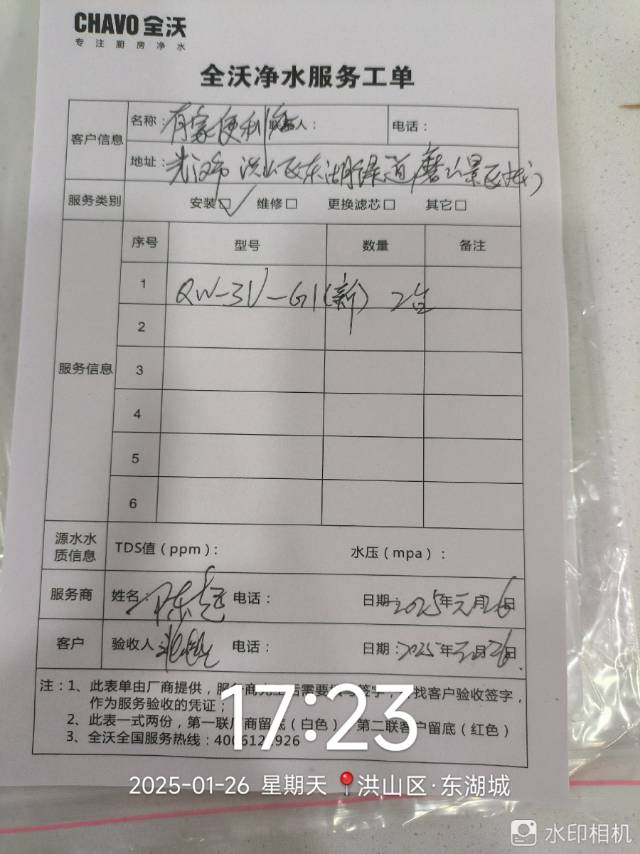 CHAVO 全沃
专注厨房净水
全沃净水服务工单
客户信息
名称：有家便利店 联系人： 电话：
地址：武汉市洪山区东湖绿道磨山景区
服务类别 安装☑ 维修□ 更换滤芯□ 其它□
服务信息
序号 型号 数量 备注
1 QW-3V-G1(新)
2
3
4
5
6
源水水质信息 TDS值（ppm）： 水压（mpa）：
服务商 姓名： 电话： 日期：2025年元月26日
客户 验收人 电话： 日期：2025年元月26日
注：1、此表单由厂商提供，服务商 需要 签字， 找客户验收签字，
作为服务验收的凭证；
2、此表一式两份，第一联厂商留底（白色） 第二联客户留底（红色）
3、全沃全国服务热线：
17:23
2025-01-26 星期天 洪山区·东湖城
水印相机